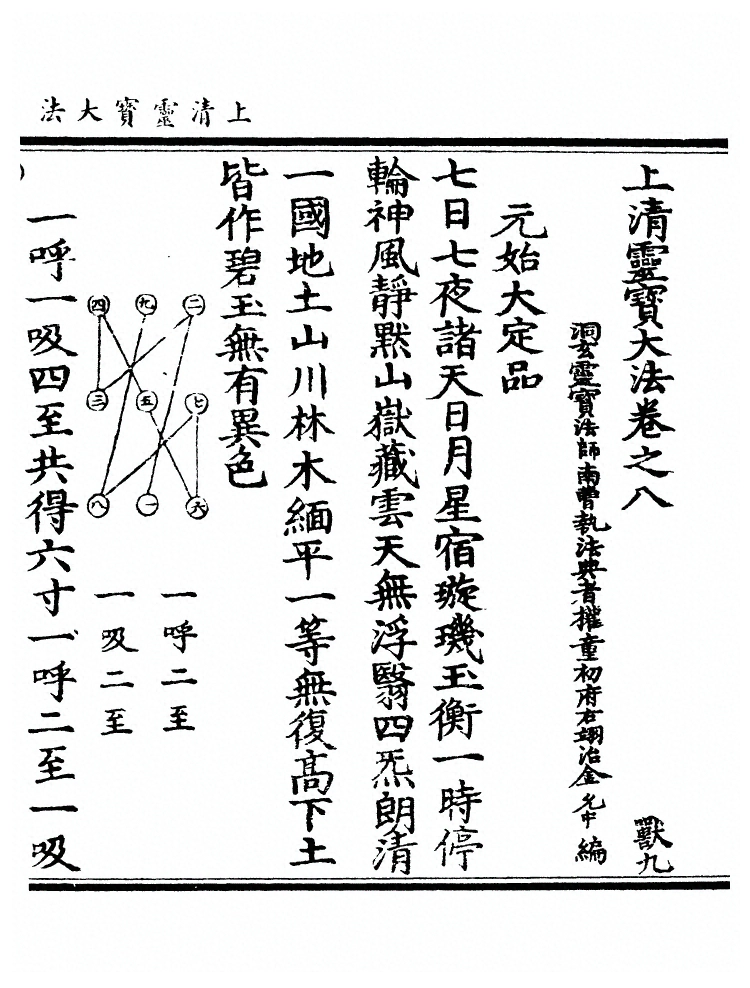 上清靈寶大法
上清靈寶大法卷之八 獸九
洞玄靈寶法師南曹執法典者權童初府右翊治金允中編
元始大定品
七日七夜諸天日月星宿璇璣玉衡一時停
輪神風靜默山嶽藏雲天無浮翳四炁朗清
一國地土山川林木緬平一等無復高下土
皆作碧玉無有異色
二 九 四
七 五 三
六 一 八
一呼二至
一吸二至
一呼一吸四至共得六寸一呼二至一吸